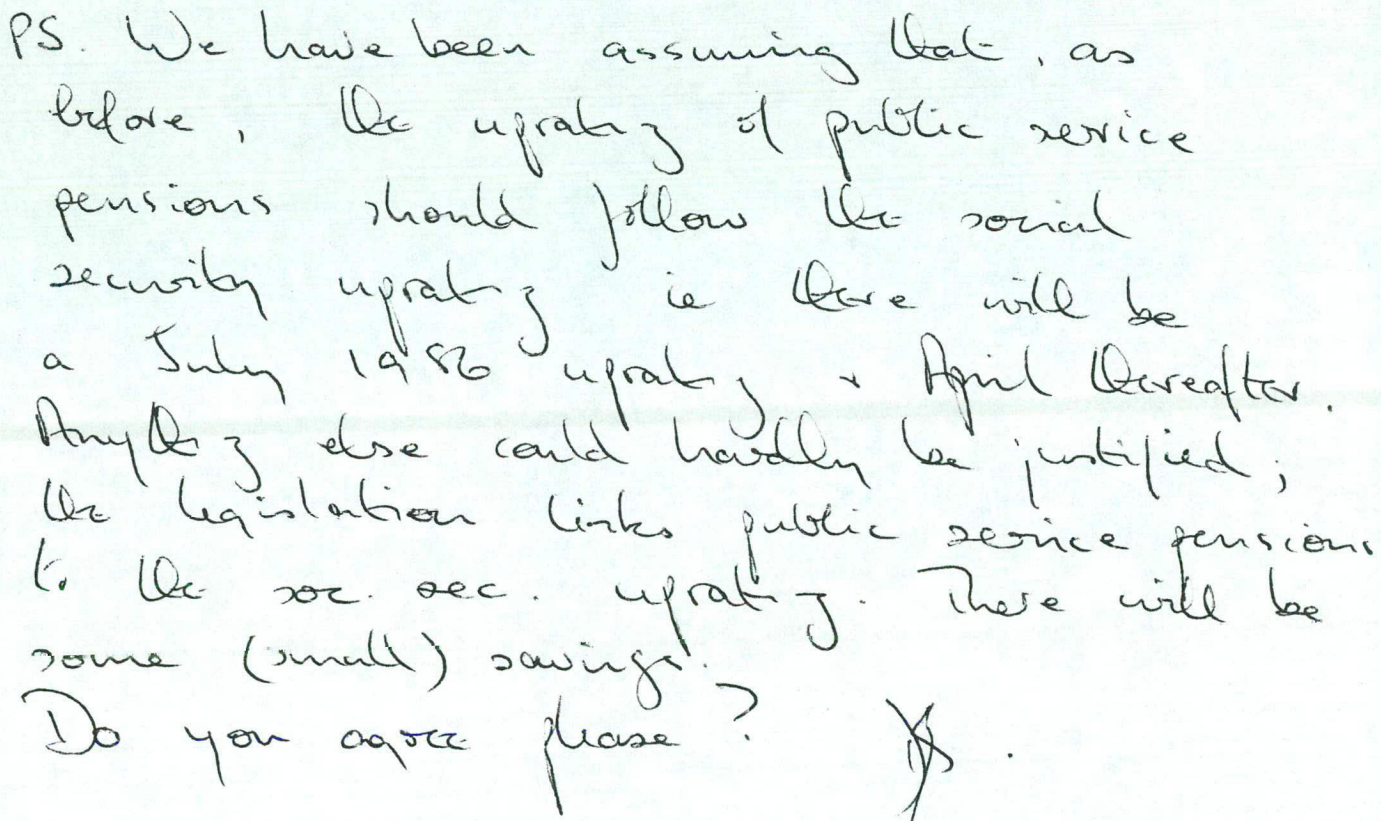 PS. We have been assuming that, as
before, the uprating of public service
pensions should follow the social
security uprating ie there will be
a July 1986 uprating & April thereafter.
Anything else could hardly be justified,
the legislation links public service pensions
to the soc. sec. uprating. There will be
some (small) savings.
Do you agree please?